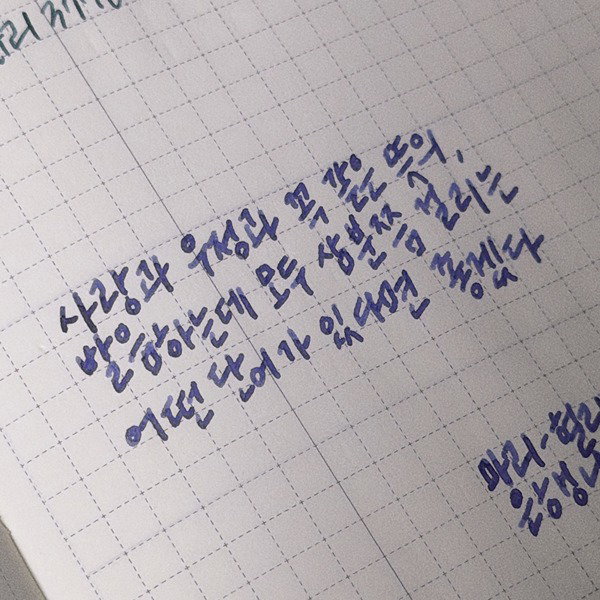 사랑과 우정과 꼭 같은 뜻의,
발음하는데 모두 삼분쯤 걸리는
어떤 단어가 있다면 좋겠다
마리-